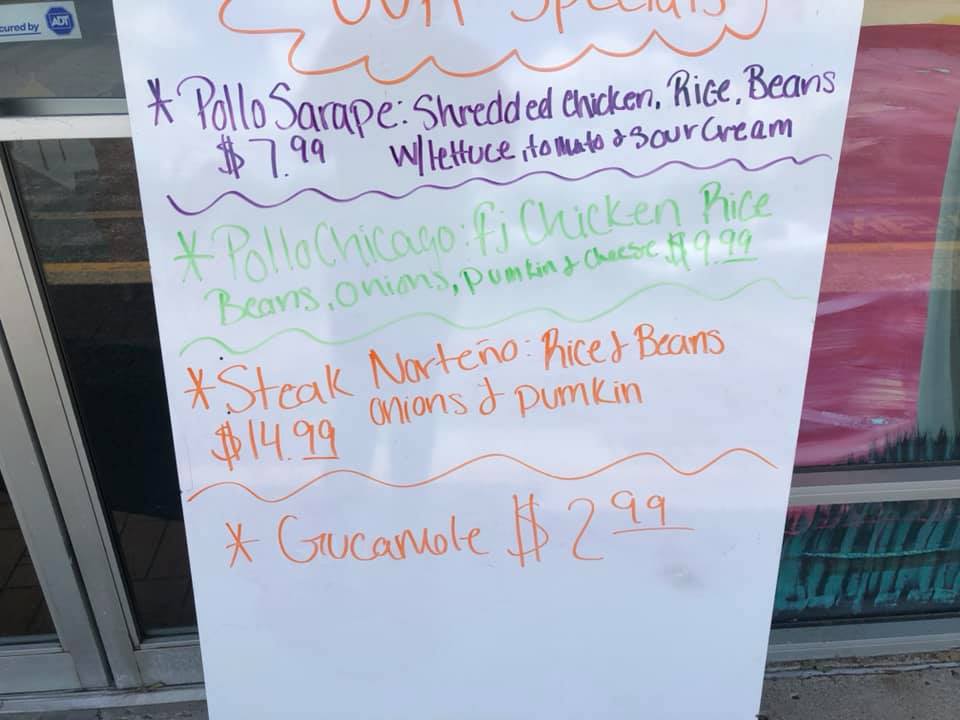 cured by ADT
OUR Specials
* Pollo Sarape: Shredded Chicken, Rice, Beans
$7.99 w/lettuce, tomato & sour cream
* Pollo Chicago: fj Chicken Rice
Beans, onions, pumkin & cheese $9.99
* Steak Norteño: Rice & Beans
$14.99 onions & pumkin
* Gucamole $2.99